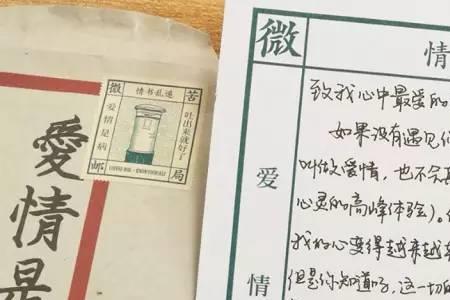 愛情是
微 苦
情书乱递
爱情是病
吐出来就好了
邮 局
微 情
爱情
致我心中最爱的
如果没有遇见你
叫做爱情，也不会
心灵的高峰体验)。
我的心变得越来越
但是你知道吗，这一切